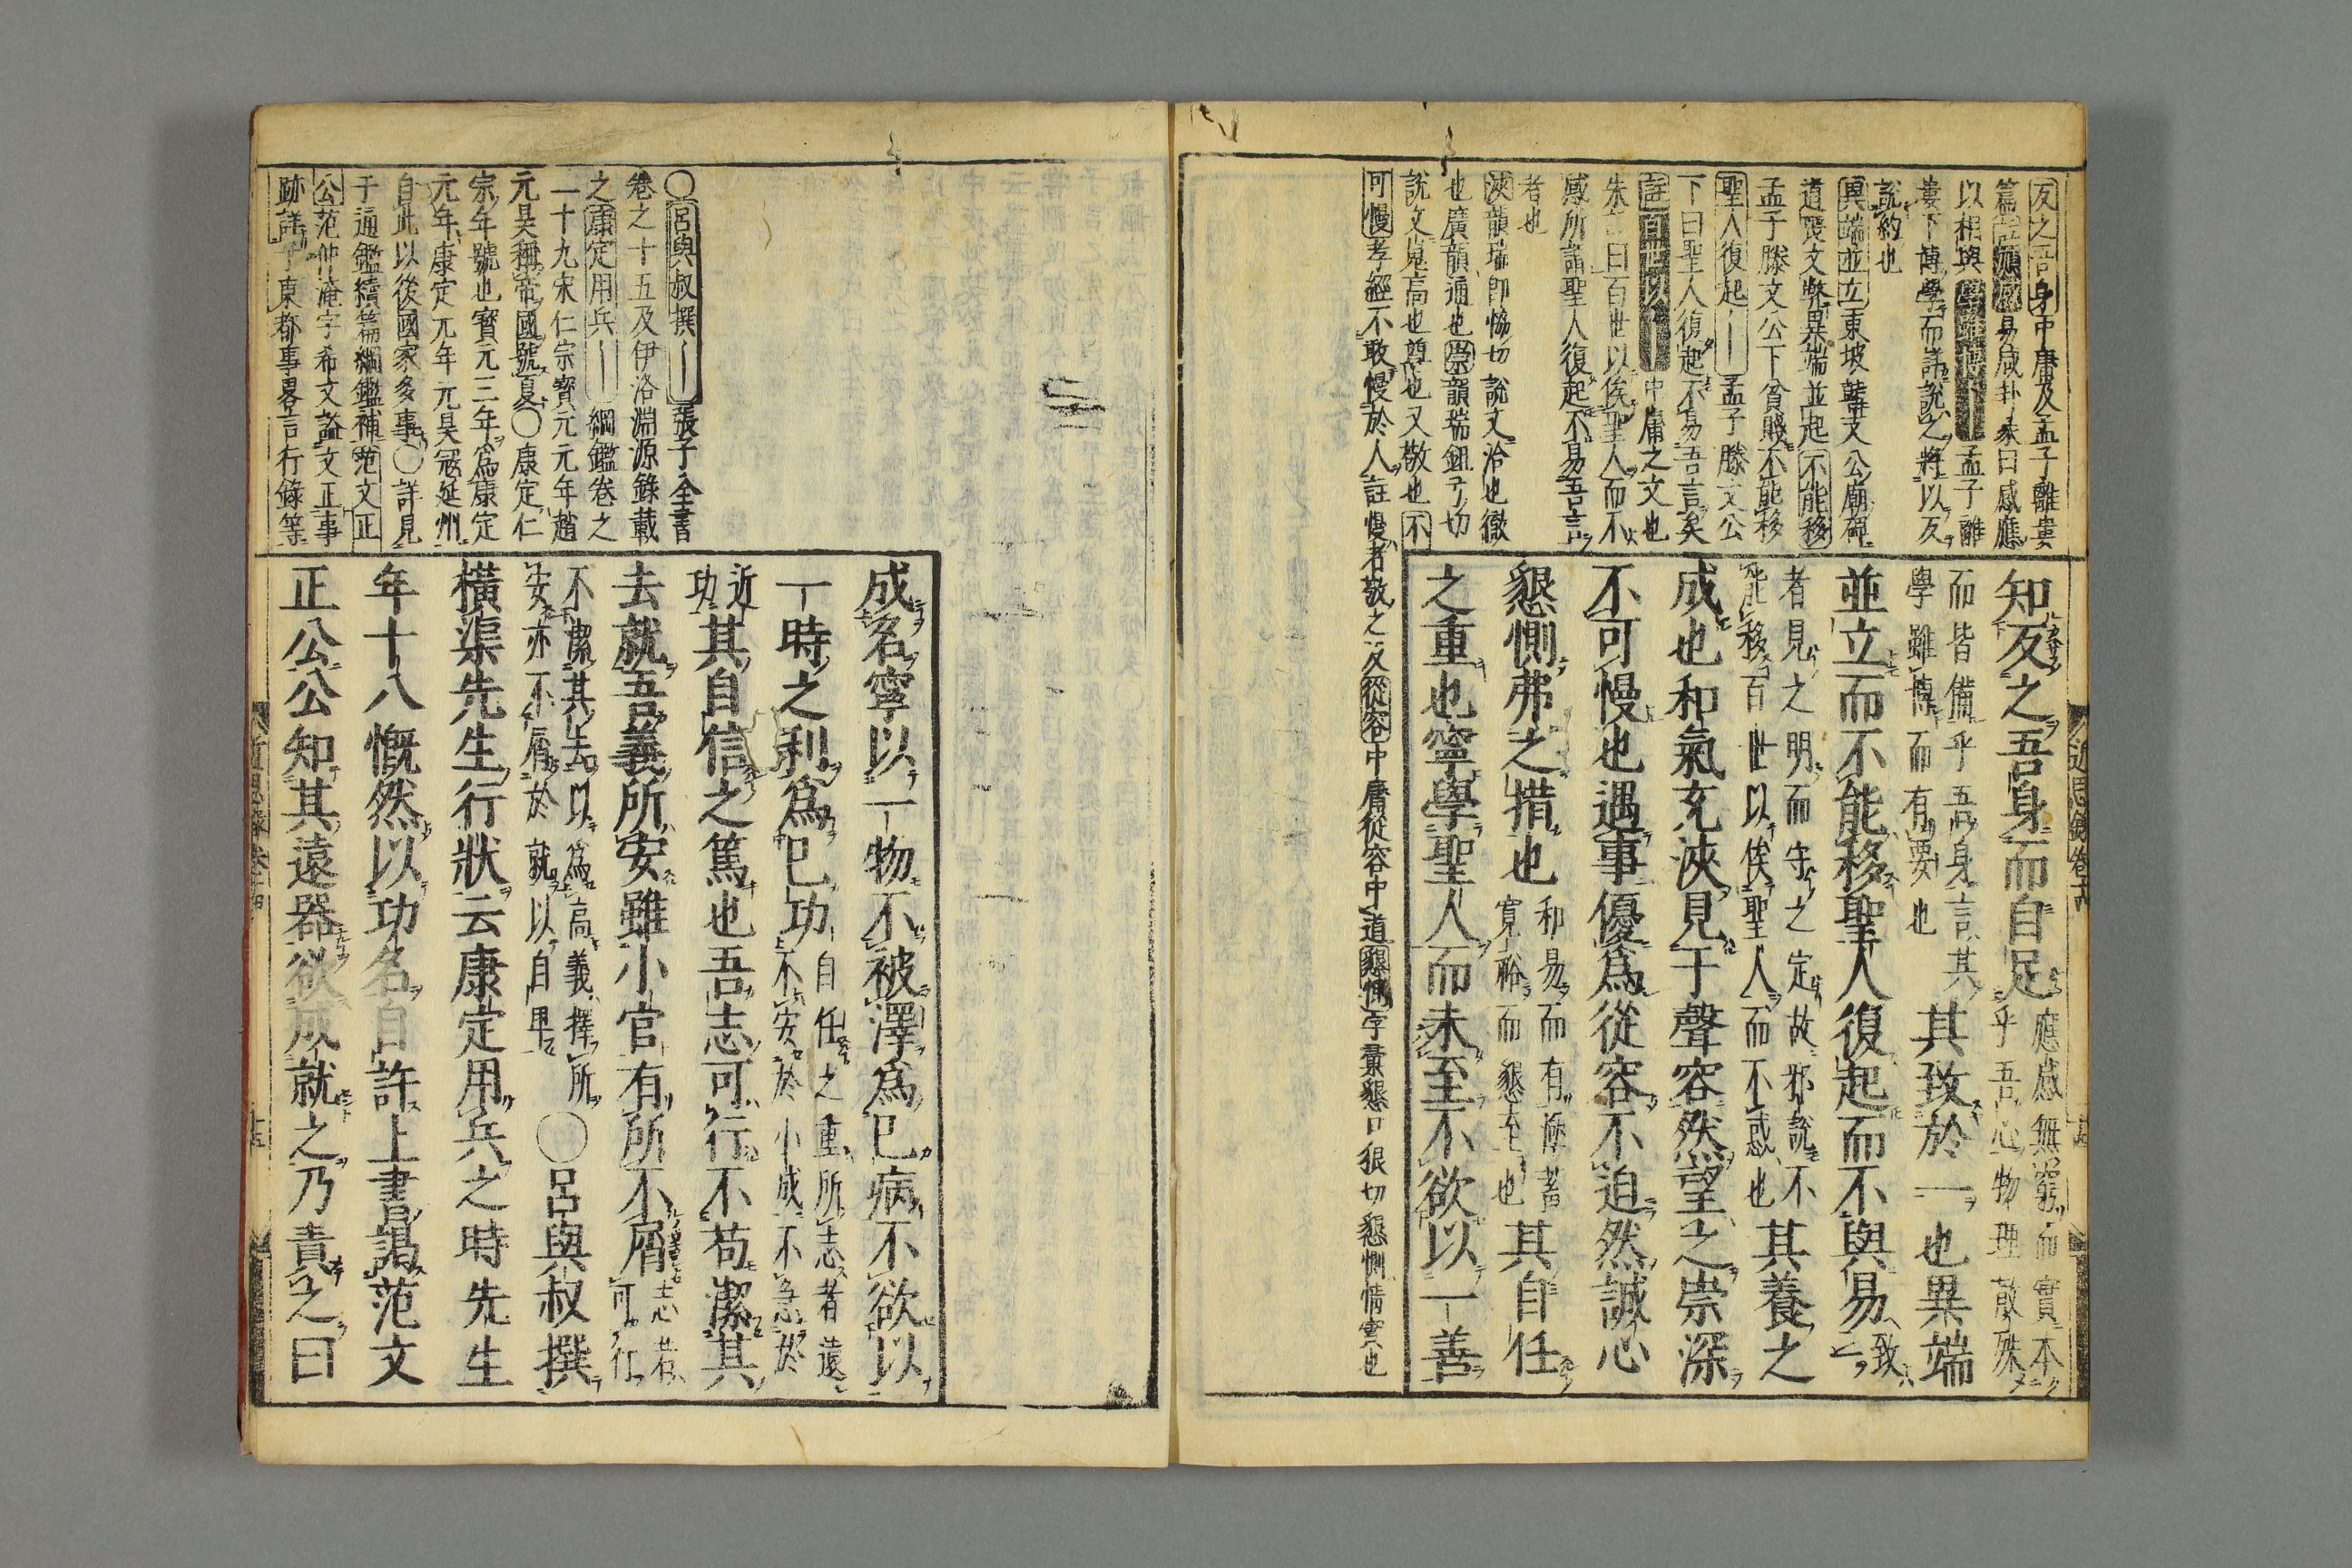 反之吾身中庸及孟子離婁
篇註願感易咸卦彖曰感應
以相與學雖博孟子離
婁下博學而詳說之將以反
說約也
異端並立東坡韓文公廟碑
道喪文弊異端並起不能移
孟子滕文公下貧賤不能移
聖人復起孟子滕文公
下曰聖人復起不易吾言矣
註百世以中庸之文也
朱曰百世以俟聖人而不
惑所謂聖人復起不易吾言
者也
浹韻瑞即恊切說文洽也徹
也廣韻通也崇韻瑞鉏弓切
說文嵬高也尊也又敬也不
可慢孝經不敢慢於人註慢者敬之反從容中庸從容中道懇惻字彙懇口狠切懇惻情實也
知反之吾身而自足應感無窮而實本
乎吾心物理散殊
而皆備乎吾身言其
學雖博而有要也其致於一也異端
並立而不能移聖人復起而不與易致
一
者見之明而守之定故邪說不
能移百世以俟聖人而不惑也其養之
成也和氣充浹見于聲容然望之崇深
不可慢也遇事優爲從容不迫然誠心
懇惻弗之措也和易而有
寛裕而懇至也其自任
之重也寧學聖人而未至不欲以一善
近思錄卷十四
○呂與叔撰張子全書
卷之十五及伊洛淵源錄載
之康定用兵綱鑑卷之
一十九宋仁宗寳元元年趙
元昊稱帝國號夏○康定仁
宗年號也寳元三年爲康定
元年康定元年元昊冦延州
自此以後國家多事○詳見
于通鑑續篇綱鑑補范文正
公范仲淹字希文謚文正事
跡詳于東都事畧言行錄等
成名寧以一物不被澤爲已病不欲以
一時之利爲已功自任之重所志者遠
不安於小成不急於
近
功其自信之篤也吾志可行不苟潔其
去就吾義所安雖小官有所不屑志若
可行
不潔其去以爲高義擇所
安亦不屑於就以自卑○呂與叔撰
橫渠先生行狀云康定用兵之時先生
年十八慨然以功名自許上書謁范文
正公公知其遠器欲成就之乃責之曰